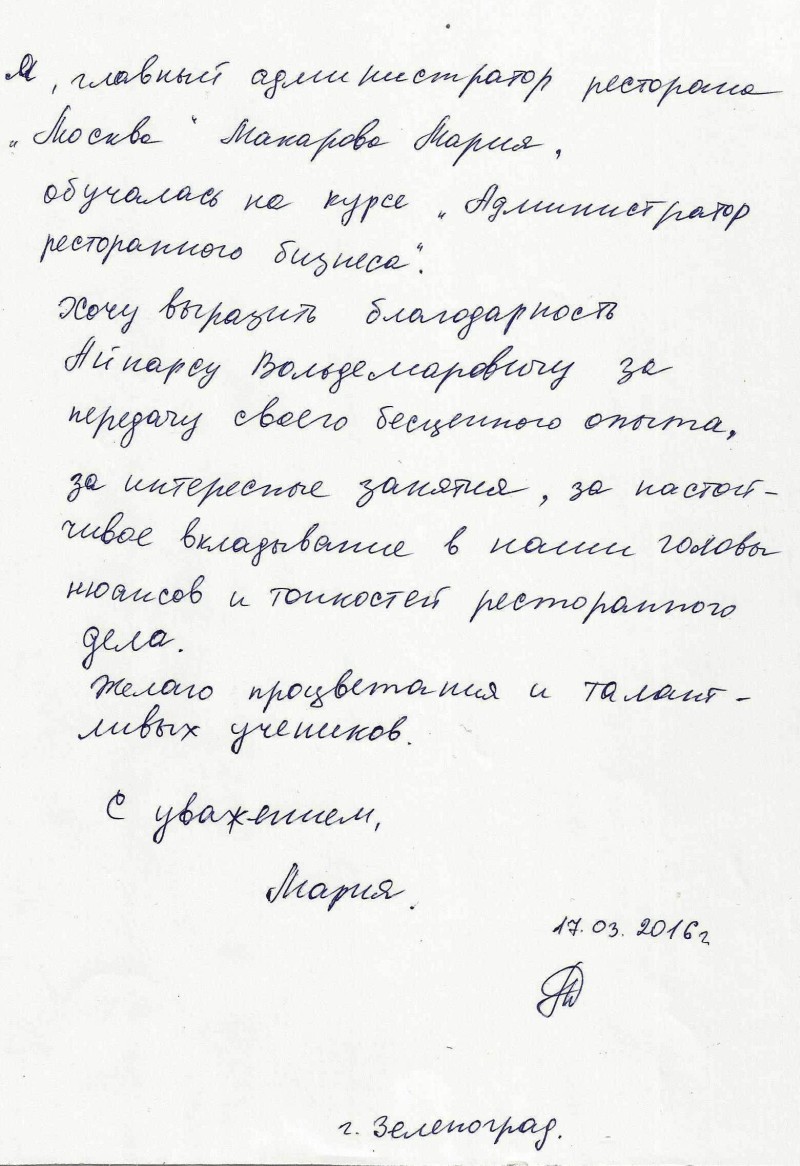 Я, главный администратор ресторана
„Москва“ Макарова Мария,
обучалась на курсе „Администратор
ресторанного бизнеса“.
Хочу выразить благодарность
Айпарсу Вольдемаровичу за
передачу своего бесценного опыта,
за интересные занятия, за настой-
чивое вкладывание в наши головы
нюансов и тонкостей ресторанного
дела.
Желаю процветания и талант-
ливых учеников.
С уважением,
Мария.
17.03.2016г
г. Зеленоград.